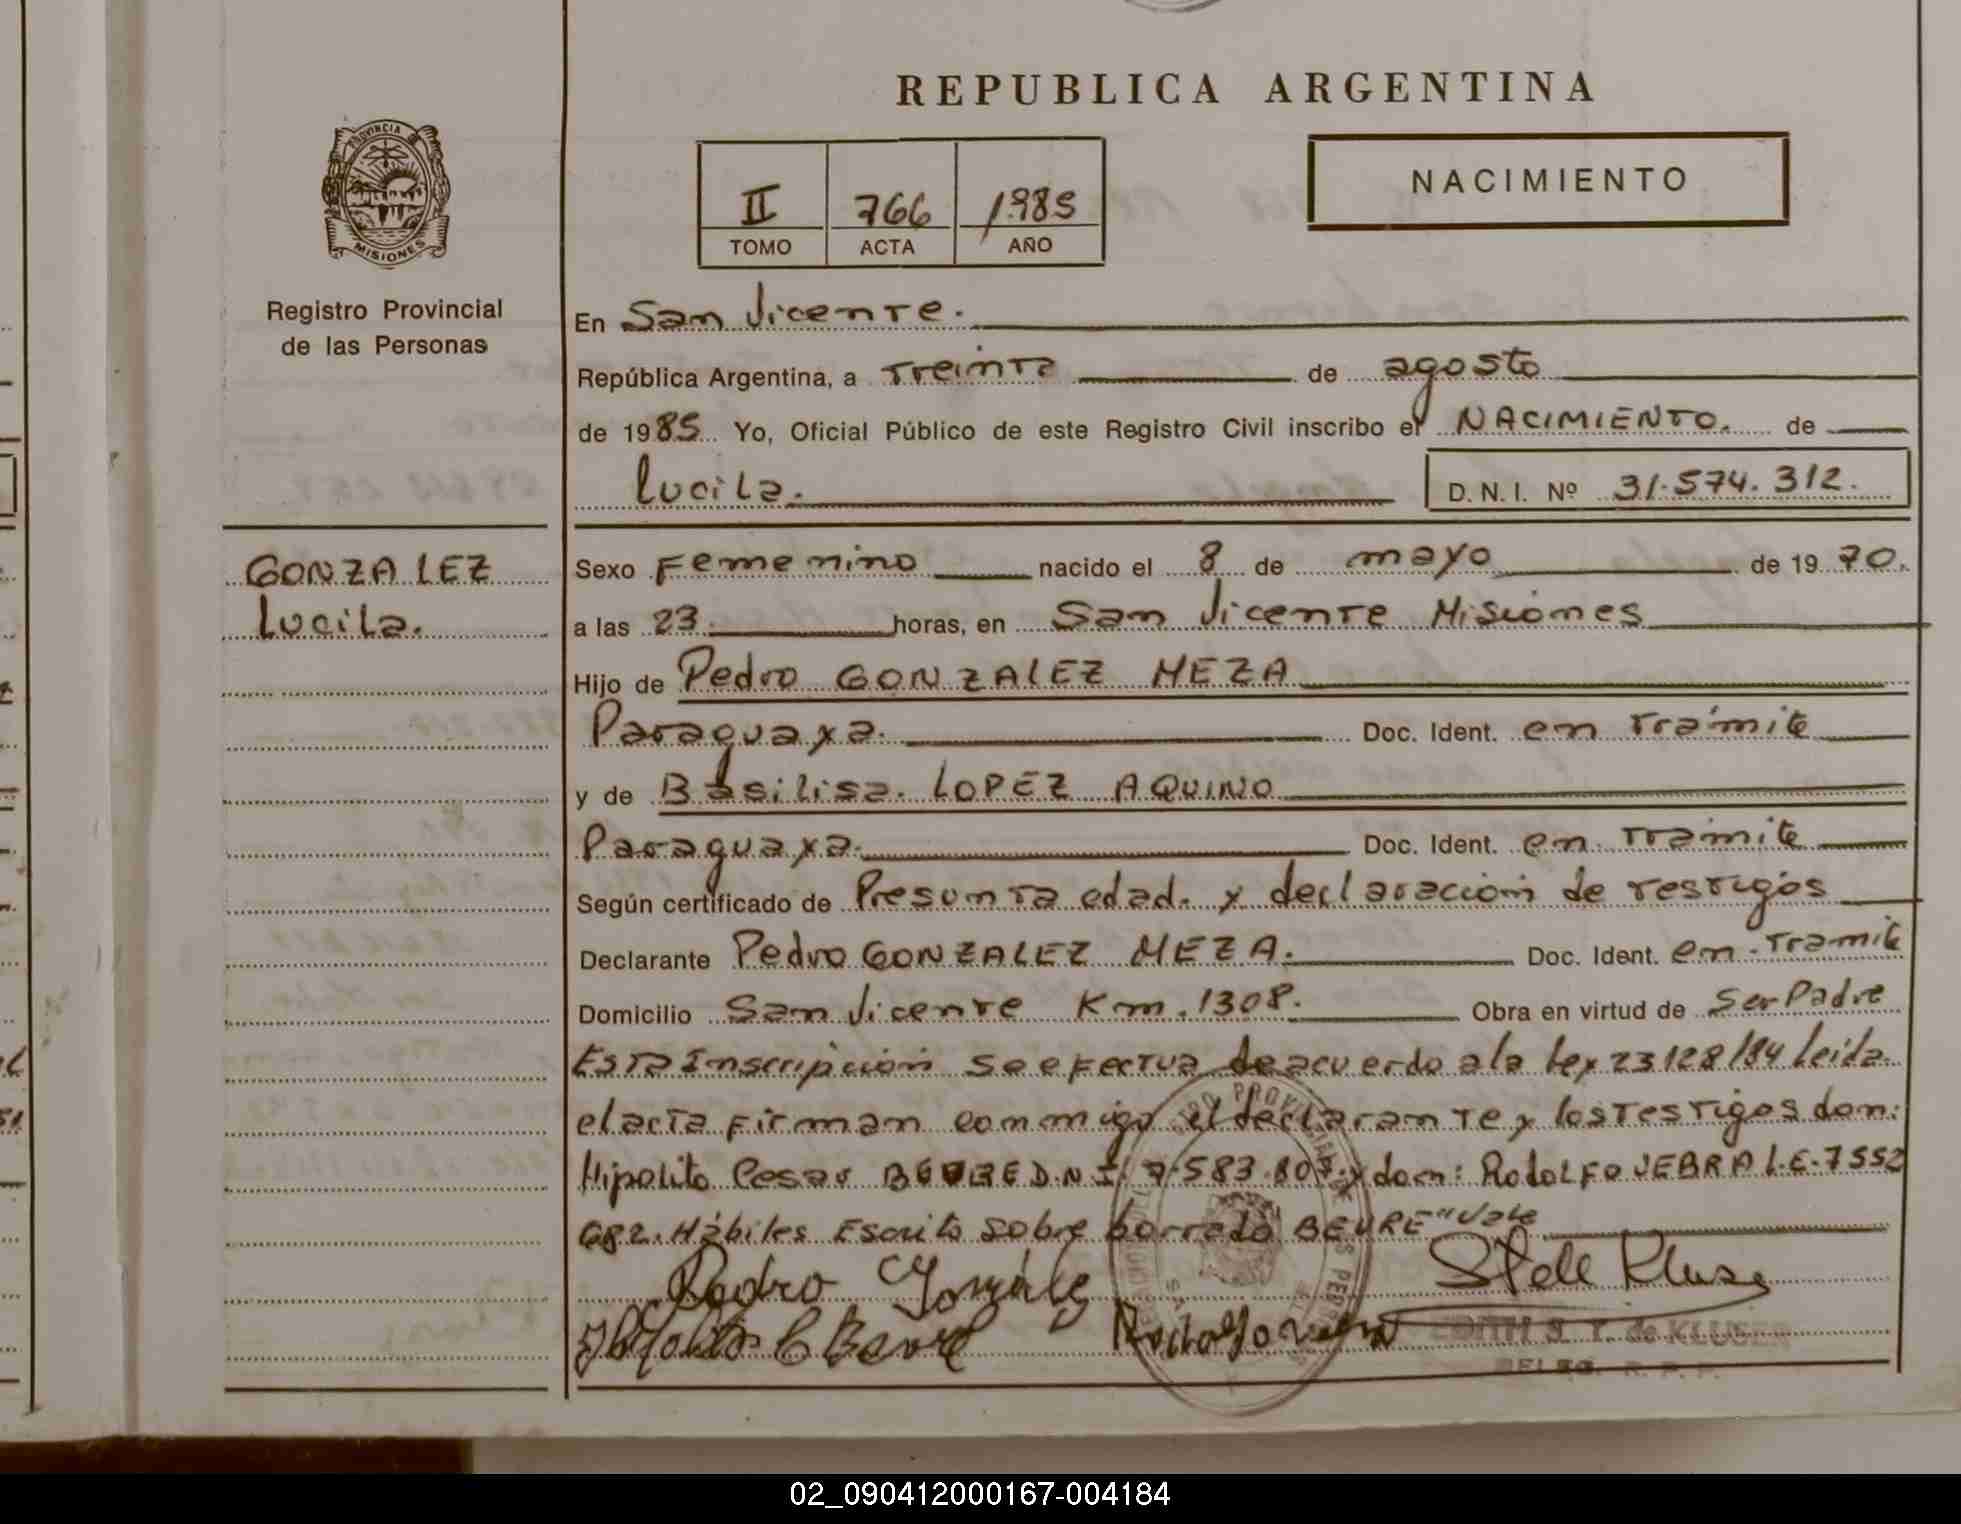 REPUBLICA ARGENTINA
PROVINCIA DE
MISIONES
Registro Provincial
de las Personas
II 766 1985
TOMO ACTA AÑO
NACIMIENTO
En San Vicente.
República Argentina, a Treinta de agosto
de 1985 Yo, Oficial Público de este Registro Civil inscribo el NACIMIENTO. de
Lucila. D. N. I. Nº 31.574.312.
GONZALEZ
Lucila.
Sexo Femenino nacido el 8 de mayo de 1970.
a las 23 horas, en San Vicente Misiones
Hijo de Pedro GONZALEZ MEZA
Paraguaya. Doc. Ident. en Trámite
y de Basilisa. LOPEZ AQUINO
Paraguaya. Doc. Ident. en Tramite
Según certificado de Presunta edad. y declaración de testigos
Declarante Pedro GONZALEZ MEZA. Doc. Ident. en Tramite
Domicilio San Vicente Km. 1308. Obra en virtud de Ser Padre
Esta Inscripción se efectua de acuerdo a la Ley 23128/84 leida
el acta firman conmigo el declarante y los testigos don:
Hipolito Cesar D.N.I. 7.583.807. y don: RODOLFO VEBRA L.E. 7552
682. Hábiles Escrito sobre borrado BEURE" Vale
Pedro Gonzále
EDITH S. T. de KLUSER
DELEG. R. P. P.
02_090412000167-004184